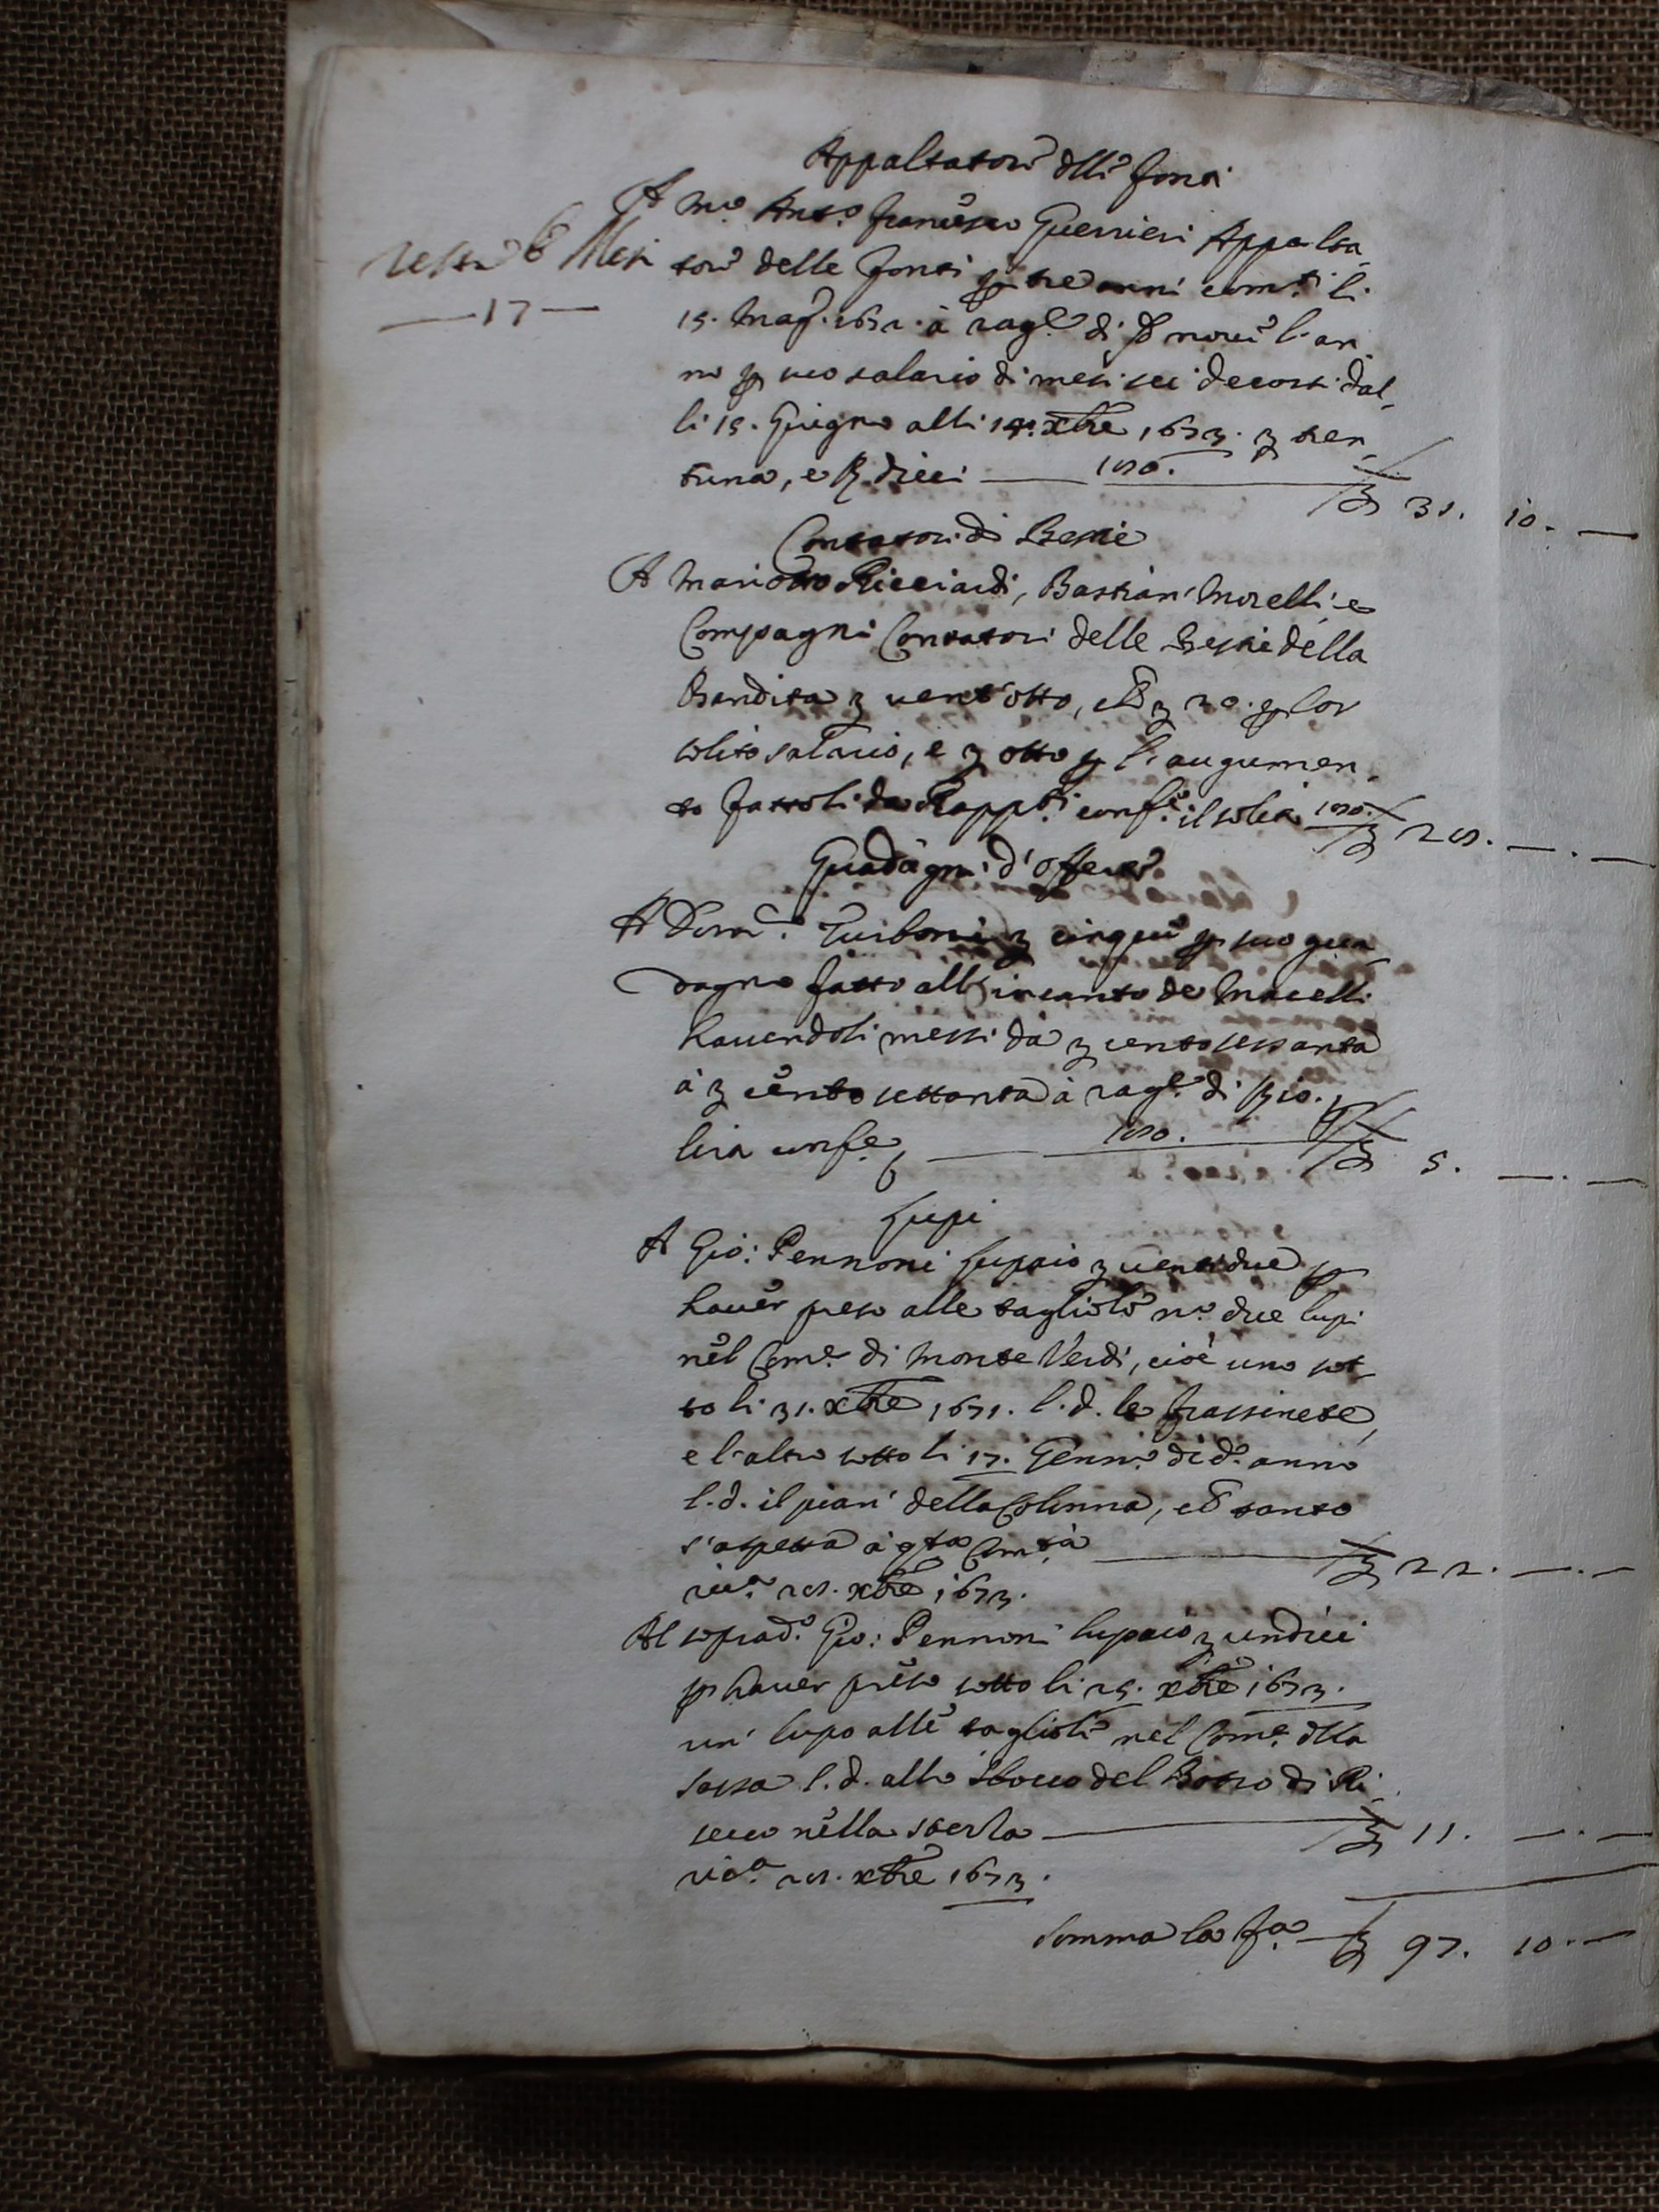 Appaltatori dlli fonti
A m.o Ant.o francesco Guerrieri Appalta
resta 6 Mesi
—17—
tore delle fonti p tre anni com.ti li
15. mag.o 1672. à rag.e di nove l'an
no p suo salario di mesi sei decorsi dal
li 15. Giugno alli 14. Xbre 1673. £ tren
tuna, e ß dieci — 1010. — £ 31. 10. —
Contatori di Bestie
A Mariotto Ricciardi, Bastian' Morelli, e
Compagni Contatori delle Bestie della
Bandita £ vent'otto, cioè £ 20. p lor
solito salario, e £ otto p l'augumen
to fattoli da Rapp.ti conf.e il solito 1010. £ 28. — . —
Guadagni d'offerte
A Dom.o Turboni £ cinque p suo gua
dagno fatto all'incanto de Macelli
havendoli messi da £ centosessanta
à £ cento settanta à rag.e di ß 10.
lira conf.e — 1010. — £ 5. — . —
Lupi
A Gio: Pennoni lupaio £ ventidue p
haver preso alle tagliole n.o due lupi
nel Com.e di Monte Verdi, cioè uno sot
to li 31. Xbre 1671. l.d. le frassinete,
e l'altro sotto li 17. Genn.o di d.o anno
l.d. il pian' della Colonna, et tanto
s'aspetta à q.ta Com.tà — £ 22. — . —
ric.a 28. Xbre 1673.
Al soprad.o Gio: Pennoni lupaio £ undici
p haver preso sotto li 25. Xbre 1673.
un' lupo alle tagliole nel Com.e dlla
Sassa l.d. allo Sbocco del Botro di Ri
secco nella sterza — £ 11. — . —
ric.a 28. Xbre 1673.
Somma la f.a — £ 97. 10. —